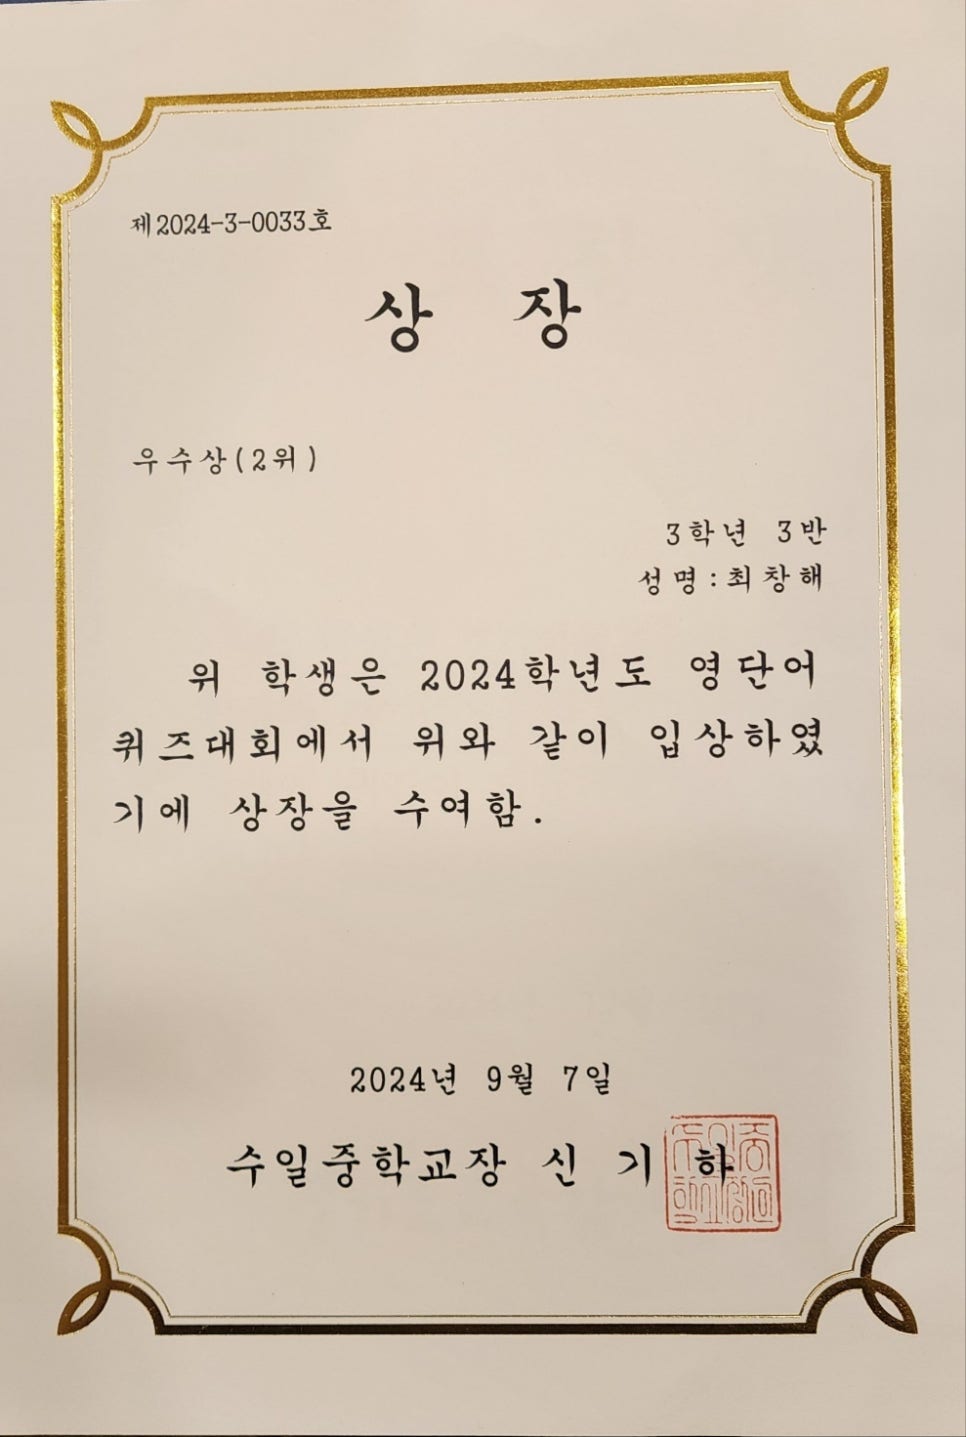 제2024-3-0033호
상 장
우수상(2위)
3학년 3반
성명:최창해
위 학생은 2024학년도 영단어
퀴즈대회에서 위와 같이 입상하였
기에 상장을 수여함.
2024년 9월 7일
수일중학교장 신 기 하